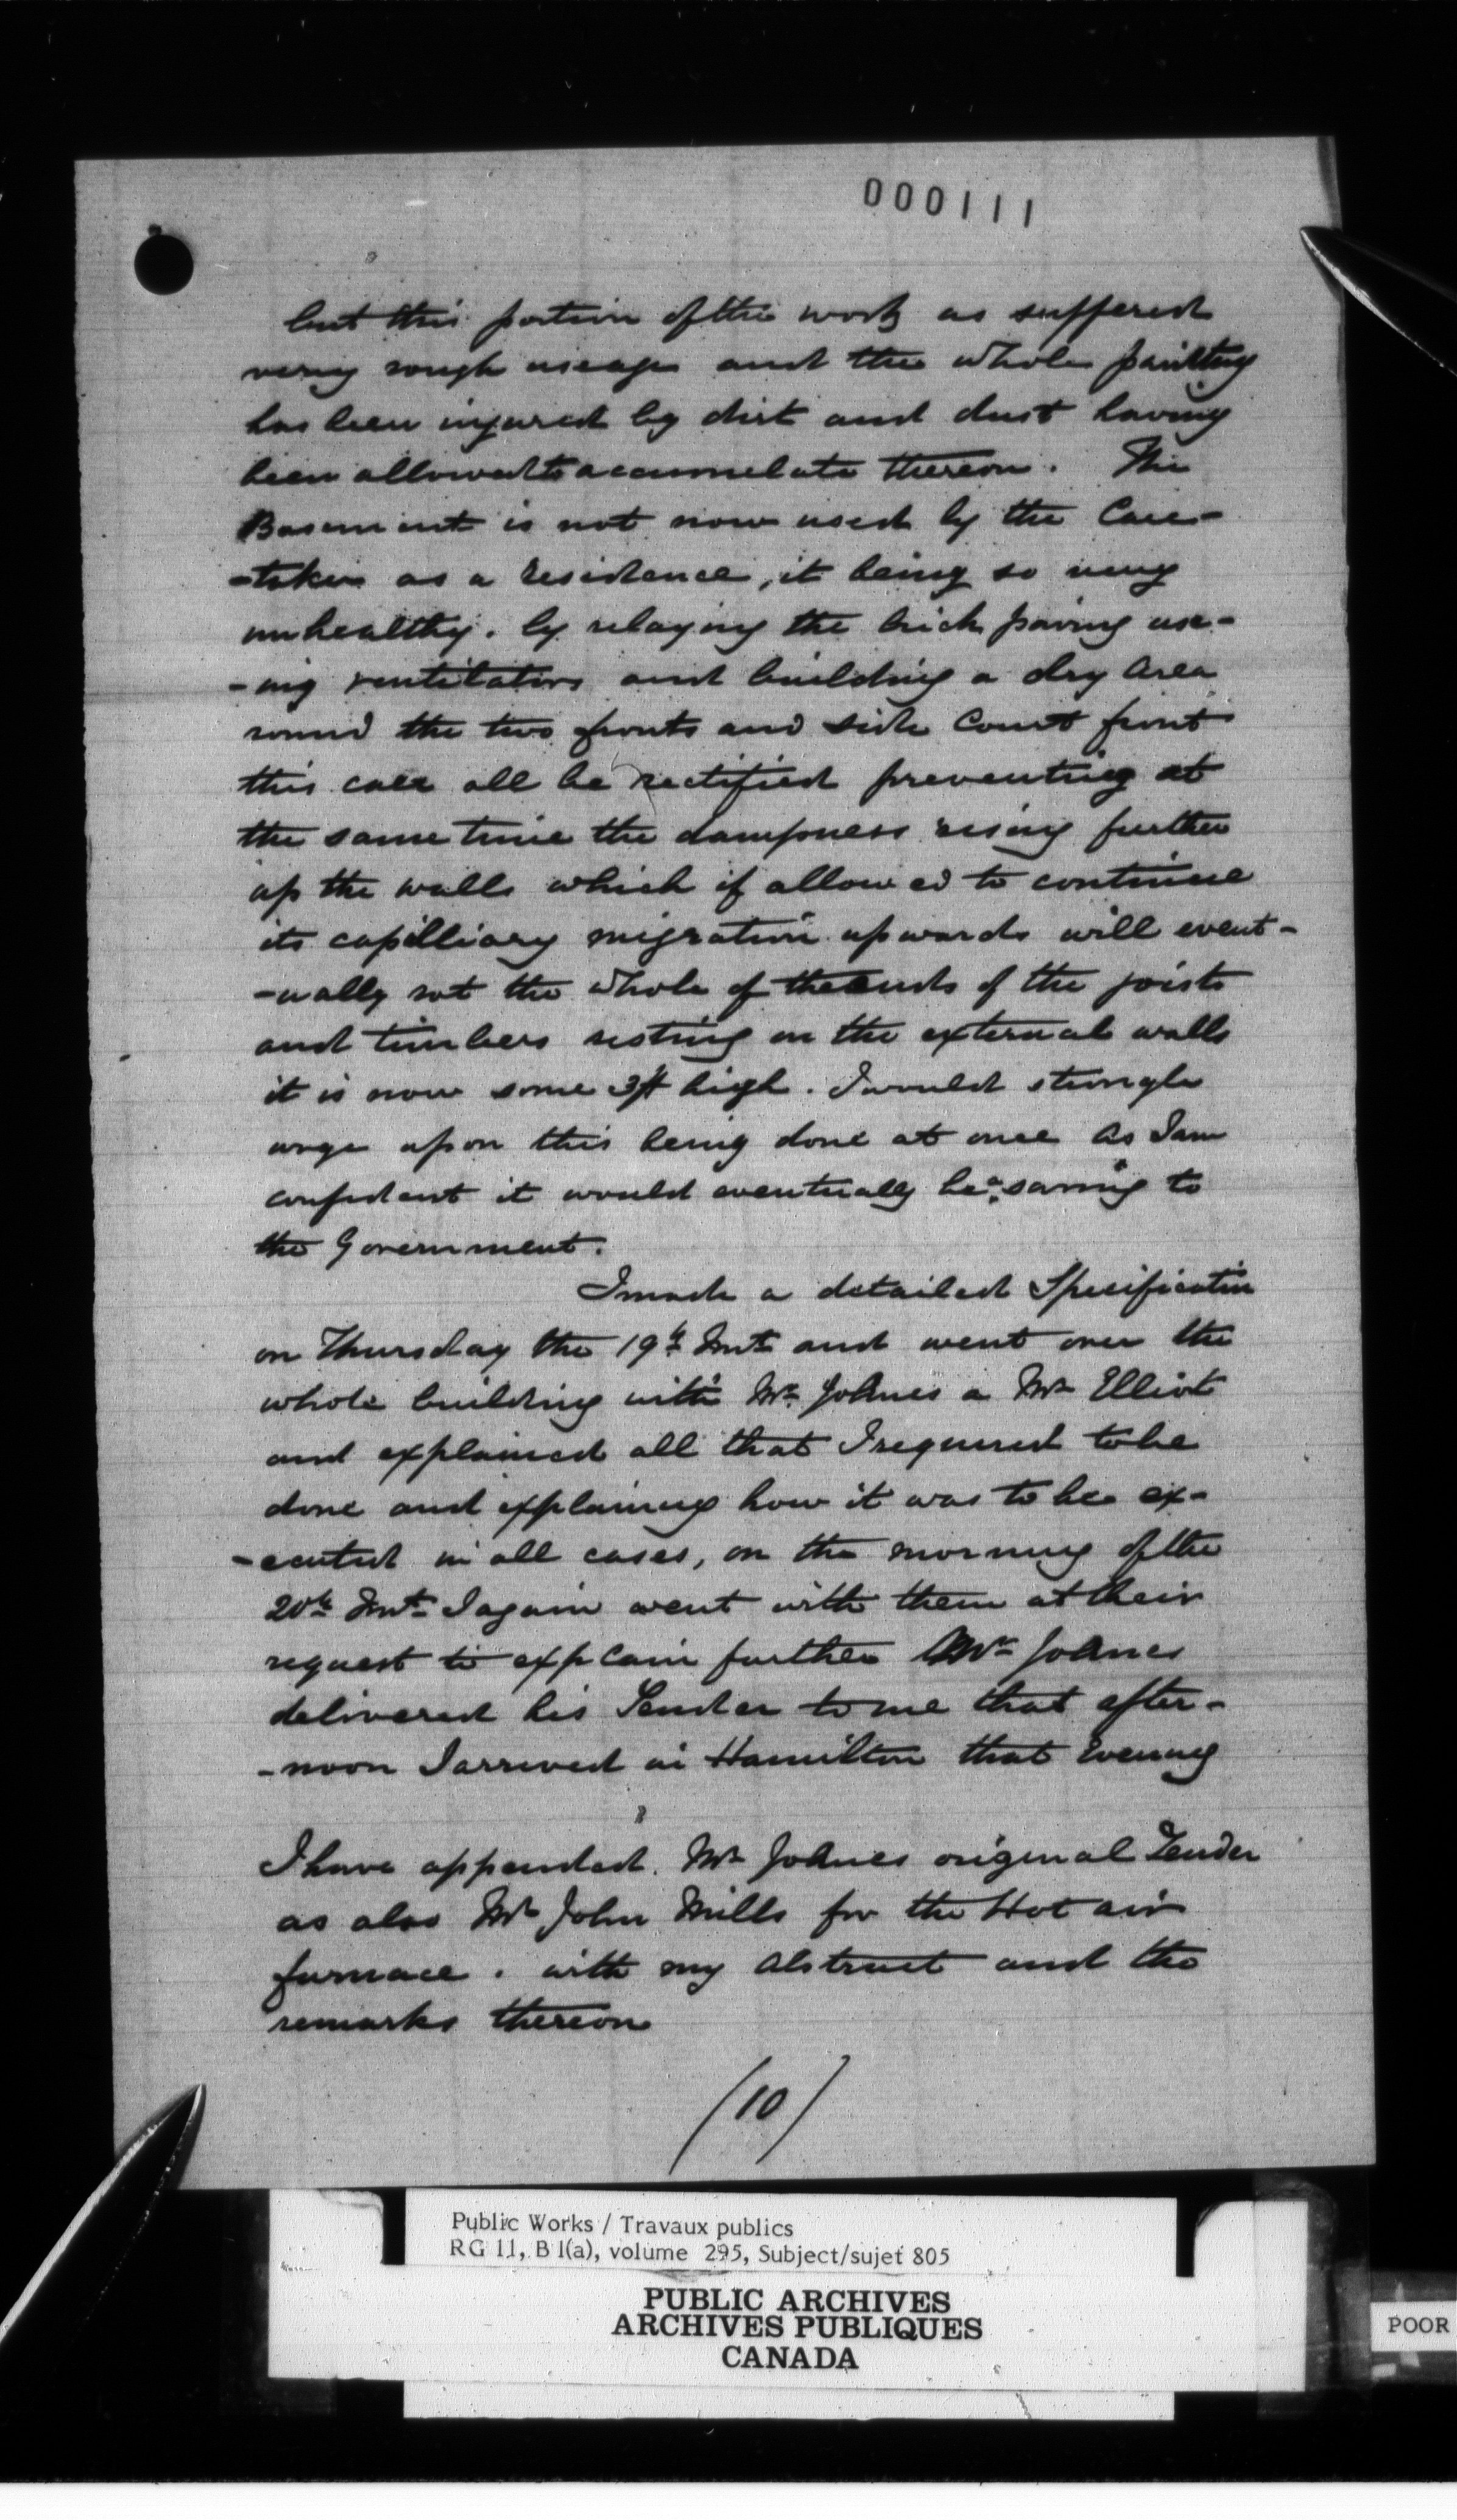 000111
but this portion of the work as suffered
very rough useage and the whole painting
has been injured by dirt and dust having
been allowed to accumulate thereon. The
Basement is not now used by the Care-
-taker as a residence, it being so very
unhealthy. by relaying the brick paving use-
-ing ventilators and building a dry area
round the two fronts and side Court front
this can all be rectified preventing at
the same time the dampness rising further
up the walls which if allowed to continue
its capilliary migration upwards will event-
-ually rot the whole of the ends of the joists
and timbers resting on the external walls
it is now some 3ft high. I would strongle
urge upon this being done at once as I am
confident it would eventually be a saving to
the Government.
I made a detailed Specification
on Thursday the 19th Inst and went over the
whole building with Mr Johnes a Mr Elliot
and explained all that I required to be
done and explaining how it was to be ex-
-ecuted in all cases, on the morning of the
20th Inst I again went with them at their
request to explain further Mr Johnes
delivered his Tender to me that after-
-noon I arrived in Hamilton that Evening
I have appended. Mr Johnes original Tender
as also Mr John Mills for the Hot air
furnace. with my Abstract and the
remarks thereon
(10)
Public Works / Travaux publics
RG 11, B 1(a), volume 295, Subject/sujet 805
PUBLIC ARCHIVES
ARCHIVES PUBLIQUES
CANADA
POOR